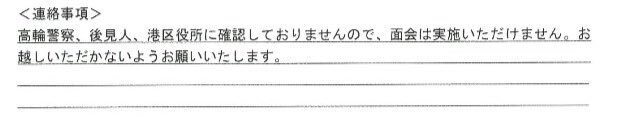 ＜連絡事項＞
高輪警察、後見人、港区役所に確認しておりませんので、面会は実施いただけません。お
越しいただかないようお願いいたします。